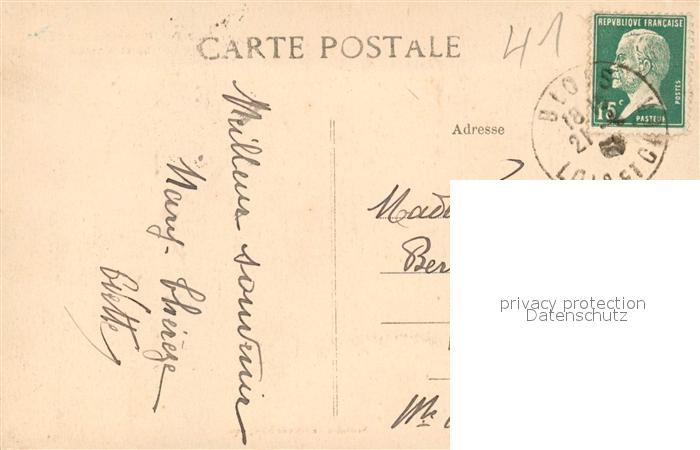 CARTE POSTALE
41
REPUBLIQUE FRANÇAISE
POSTES
15c
PASTEUR
BLOIS
18
21
LOIR ET CH
Adresse
Meilleur souvenir
Mary-Thérèze
Yvette
privacy protection
Datenschutz